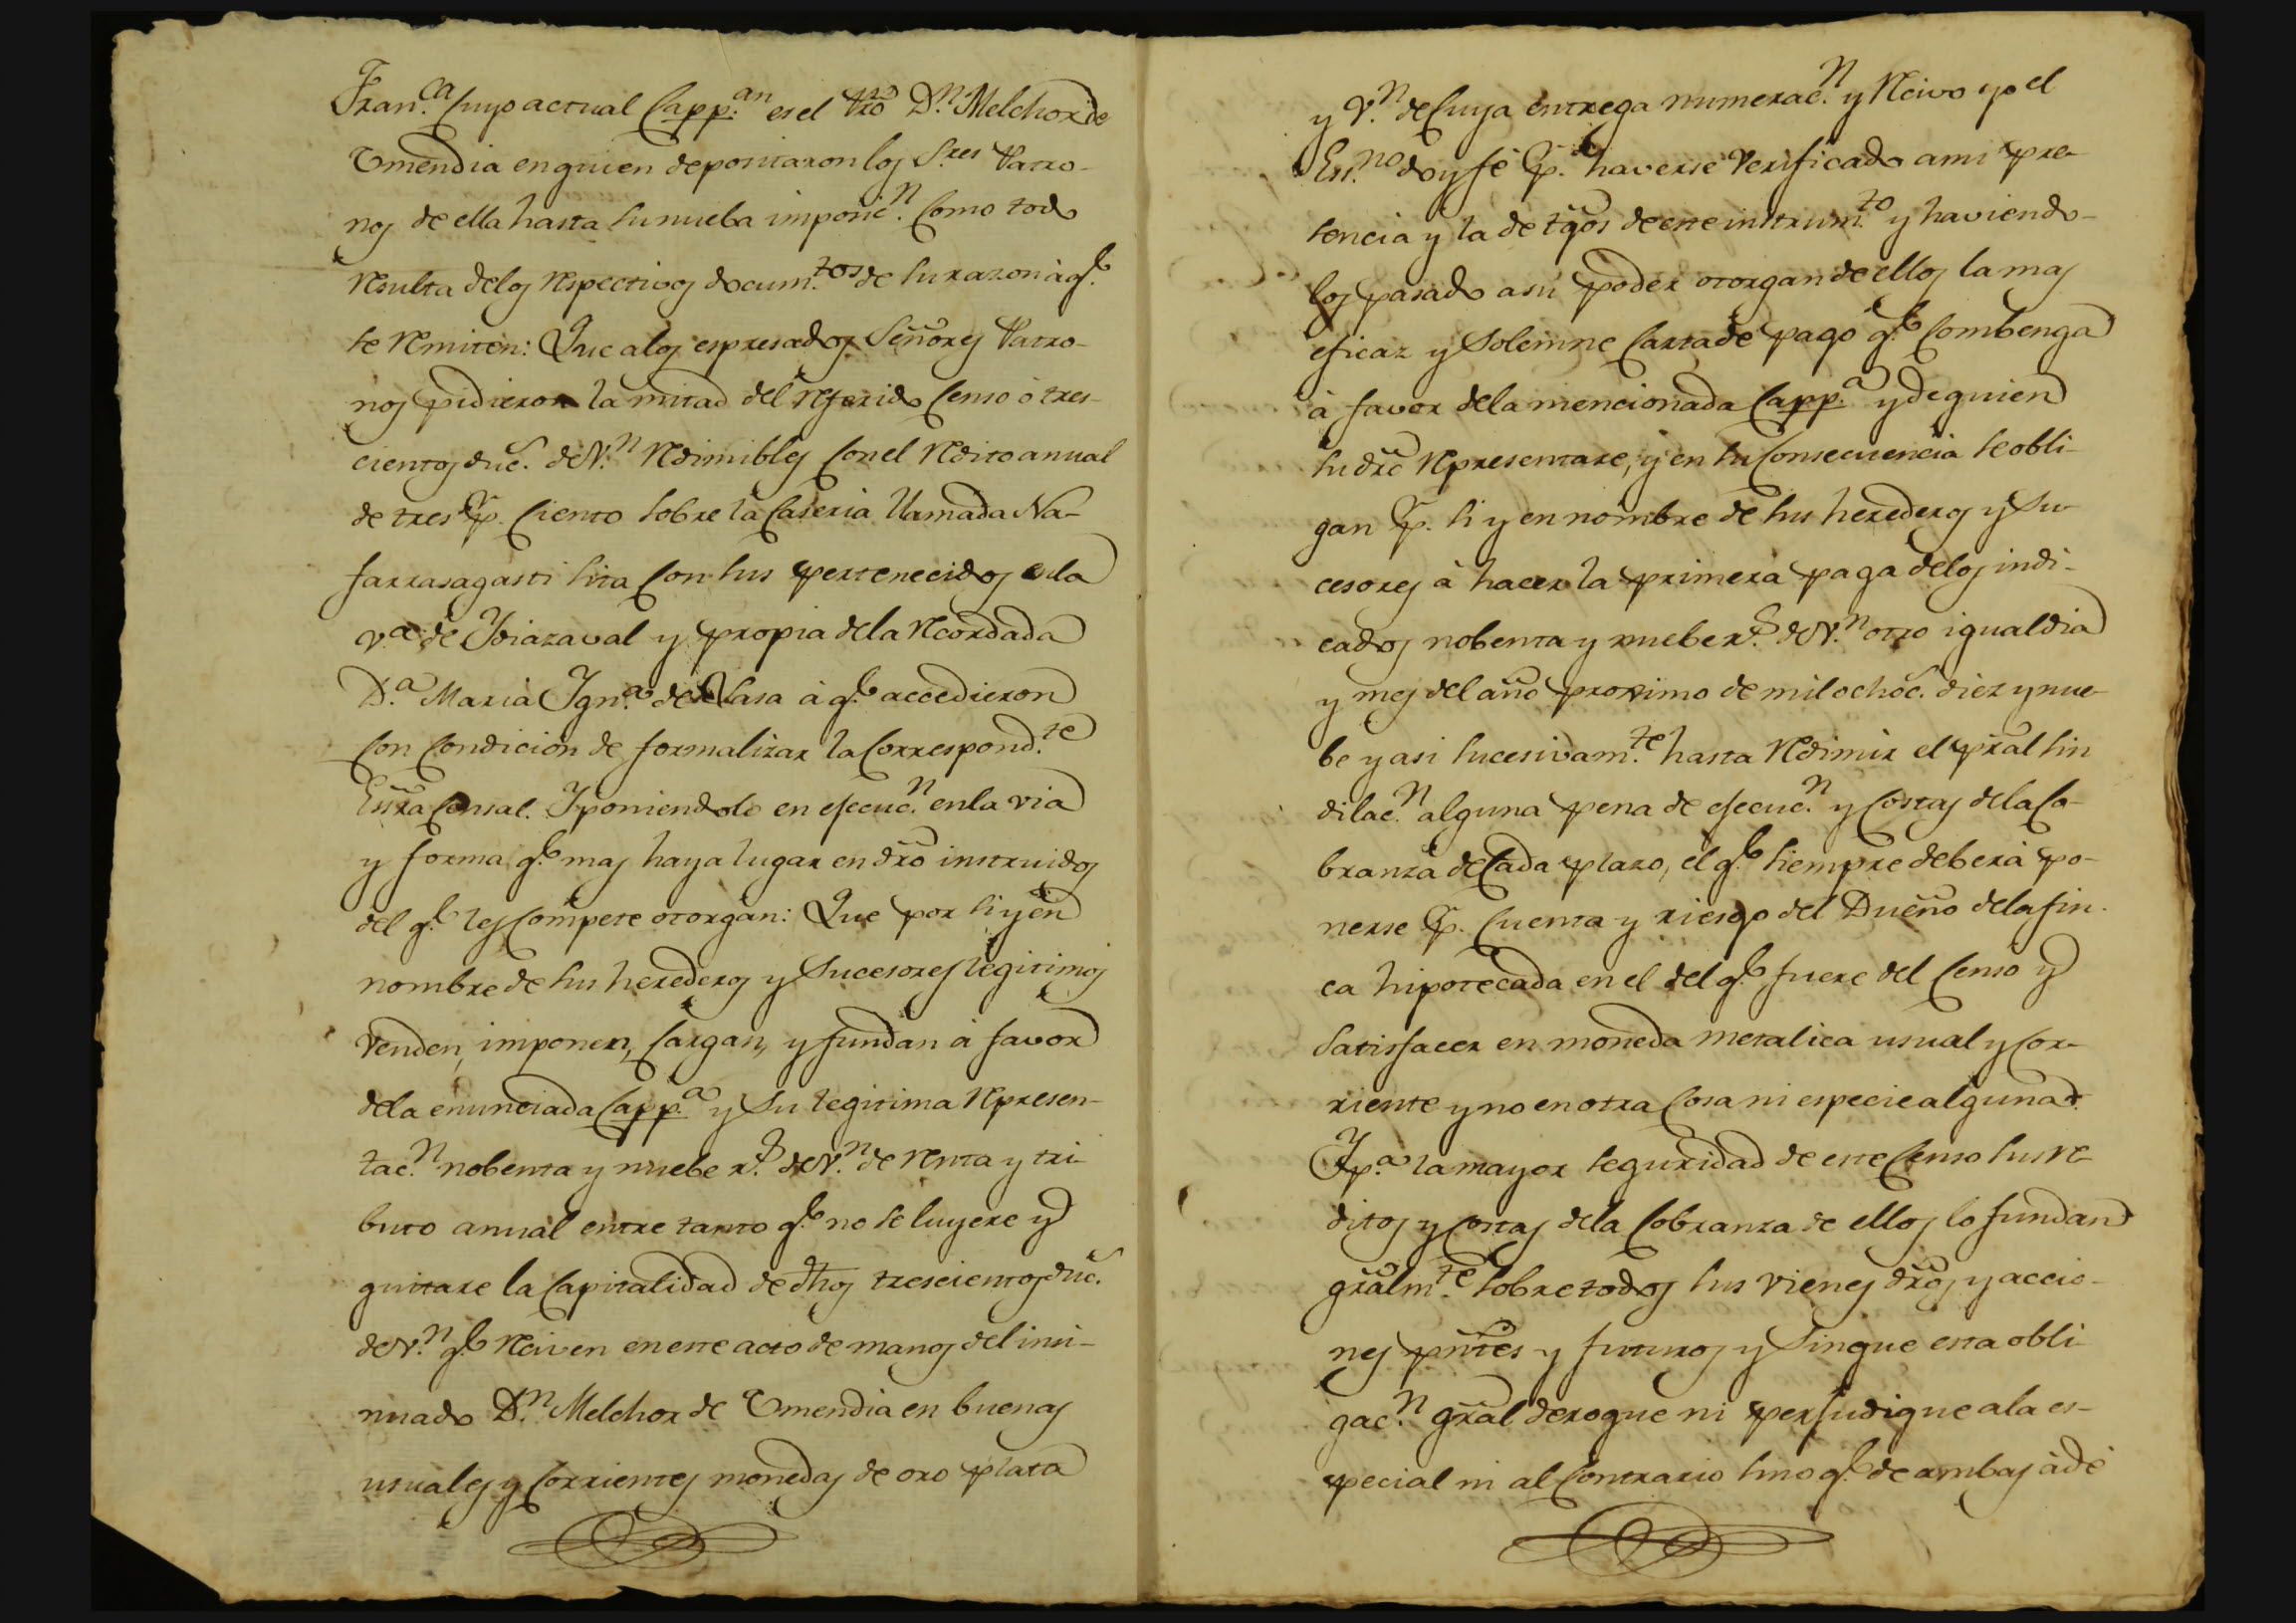 Fran.ca Cuyo actual Capp.an es el Pro D.n Melchor de
Vmendia en quien depositaron los S.res Patro-
nos de ella hasta su nueba imposic.n Como todo
Resulta delos Respectivos docum.tos de su razon à q.e
se Remiten: Que alos espresados Señores Patro-
nos pidieron la mitad del Referido Censo ò tres-
cientos duc.s de V.n Redimibles Con el Redito anual
de tres p.r Ciento sobre la Caseria llamada Na-
farrasagasti sita Con sus pertenecidos en la
v.a de Ydiazaval y propia dela Recordada
D.a Maria Ygn.a de Lasa à q.e accedieron
Con Condicion de formalizar la Correspond.te
Essra Censal. Y poniendolo en efecuc.n en la via
y forma q.e mas haya lugar en dro instruidos
del q.e les Compete otorgan: Que por si y en
nombre de sus herederos y Sucesores legitimos
Venden, imponen, Cargan, y fundan à favor
dela enunciada Capp.a y Su legitima Represen-
tac.n nobenta y nuebe r.s de V.n de Renta y tri-
buto anual entre tanto q.e no se luyere y
quitare la Capitalidad de dhos trescientos duc.s
de V.n q.e Reciven en este acto de manos del insi-
nuado D.n Melchor de Vmendia en buenas
usuales y Corrientes monedas de oro plata
y V.n de Cuya entrega numerac.n y Recivo yo el
Ess.no doy fé p.r haverse Verificado a mi pre-
sencia y la de tgos de este instrum.to y haviendo-
los pasado a su poder otorgan de ellos la mas
eficaz y Solemne Carta de pago q.e Combenga
à favor dela mencionada Capp.a y de quien
su dro Representare, y en su Consecuencia se obli-
gan p.r si y en nombre de sus herederos y Su-
cesores à hacer la primera paga delos indi-
cados nobenta y nuebe r.s de V.n otro igual dia
y mes del año proximo de mil ochoc.s diez y nue-
be y asi sucesivam.te hasta Redimir el pral sin
dilac.n alguna pena de efecuc.n y Costas dela Co-
branza de Cada plazo, el q.e siempre deberà po-
nerse p.r Cuenta y riesgo del Dueño dela fin-
ca hipotecada en el del q.e fuere del Censo y
Satisfacer en moneda metalica usual y Cor-
riente y no en otra Cosa ni especie alguna.
Y p.a la mayor seguridad de este Censo sus re-
ditos y Costas dela Cobranza de ellos lo fundan
gralm.te sobre todos sus vienes dros y accio-
nes pntes y futuros y Sin que esta obli-
gac.n gral derogue ni perjudique ala es-
pecial ni al Contrario sino q.e de ambas à de